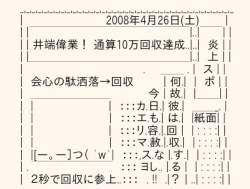 2008年4月26日(土)
井端偉業! 通算10万回収達成
炎上スポ
会心の駄洒落→回収
何故彼は回収する?
今日も容赦なし!!
カエリマスヨ
紙面
[ー。ー]つ( ´w`|
2秒で回収に参上